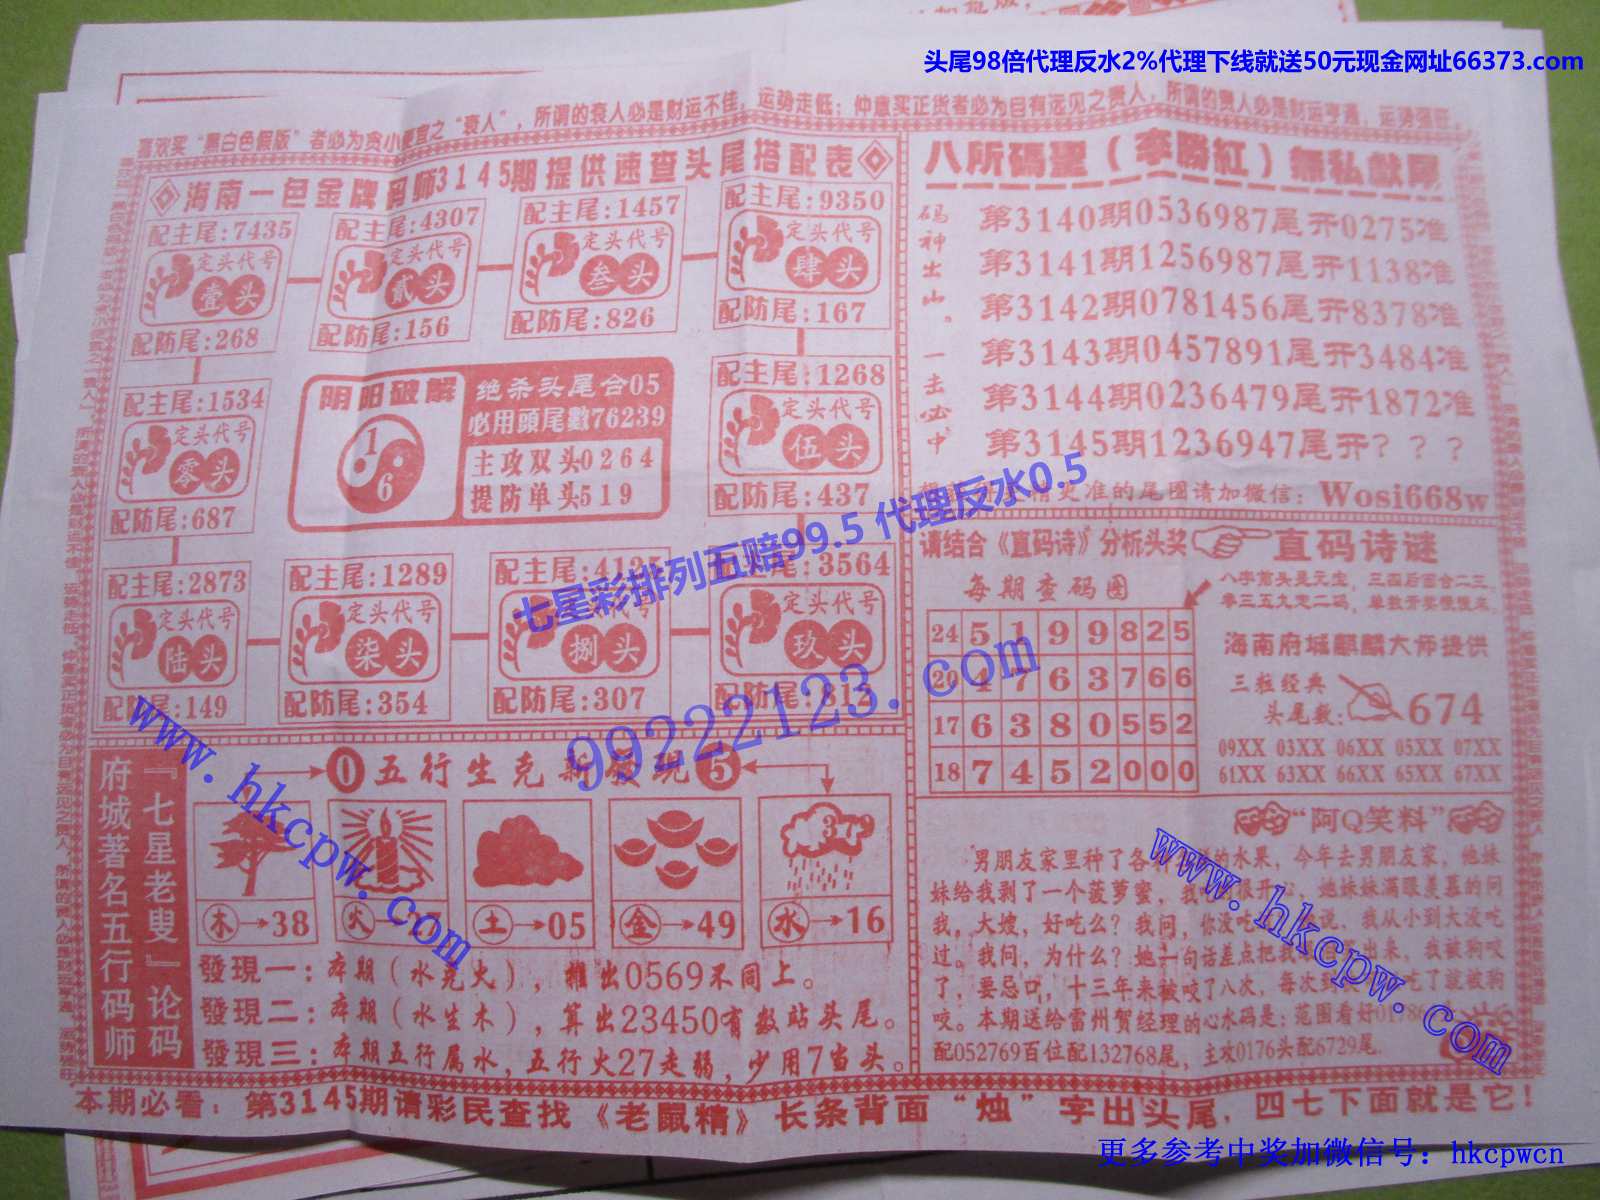 头尾98倍代理反水2%代理下线就送50元现金网址66373.com
喜欢买“黑白色假版”者必为贪小便宜之“衰人”，所谓的衰人必是财运不佳，运势走低；仲意买正货者必为目有远见之贵人，所谓的贵人必是财运亨通，运势强旺
海南一包金牌码师3145期提供速查头尾搭配表
配主尾:7435
定头代号
壹头
配防尾:268
配主尾:4307
定头代号
贰头
配防尾:156
配主尾:1457
定头代号
叁头
配防尾:826
配主尾:9350
定头代号
肆头
配防尾:167
配主尾:1534
定头代号
零头
配防尾:687
阴阳破解
1
6
绝杀头尾合05
必用頭尾數76239
主攻双头0264
提防单头519
配主尾:1268
定头代号
伍头
配防尾:437
配主尾:2873
定头代号
陆头
配防尾:149
配主尾:1289
定头代号
柒头
配防尾:354
配主尾:
定头代号
捌头
配防尾:307
配主尾:3564
定头代号
玖头
配防尾:812
八所碼聖（李勝紅）無私献尾
码神出山。一击必中
第3140期0536987尾开0275准
第3141期1256987尾开1138准
第3142期0781456尾开8378准
第3143期0457891尾开3484准
第3144期0236479尾开1872准
第3145期1236947尾开？？？
更准的尾图请加微信：Wosi668w
七星彩排列五赔99.5 代理反水0.5
99222123.com
请结合《直码诗》分析头奖
直码诗谜
每期查码图
八字剪头是元宝，三四后面合二三，
零三五九定二码，单数开奖慢慢来。
24 5 1 9 9 8 2 5
20 4 7 6 3 7 6 6
17 6 3 8 0 5 5 2
18 7 4 5 2 0 0 0
海南府城麒麟大师提供
三粒经典
头尾数：674
09XX 03XX 06XX 05XX 07XX
61XX 63XX 66XX 65XX 67XX
『七星老叟』论码
府城著名五行码师
0 五行生克新發現 5
木→38
火→
土→05
金→49
水→16
發現一：本期（水克火），推出0569不同上。
發現二：本期（水生木），算出23450有数站头尾。
發現三：本期五行属水，五行火27走弱，少用7当头。
“阿Q笑料”
男朋友家里种了各种各样的水果，今年去男朋友家，他妹
妹给我剥了一个菠萝蜜，我吃的很开心，她妹妹满眼羡慕的问
我，大嫂，好吃么？我问，你没吃过？她说，我从小到大没吃
过。我问，为什么？她一句话差点把我出来，我被狗咬
了，要忌口，十三年来被咬了八次，每次到吃了就被狗
咬。本期送给雷州贺经理的心水码是：范围看好01786
配052769百位配132768尾，主攻0176头配6729尾.
www.hkcpw.com
www.hkcpw.com
本期必看：第3145期请彩民查找《老鼠精》长条背面“烛”字出头尾，四七下面就是它！
更多参考中奖加微信号：hkcpwcn